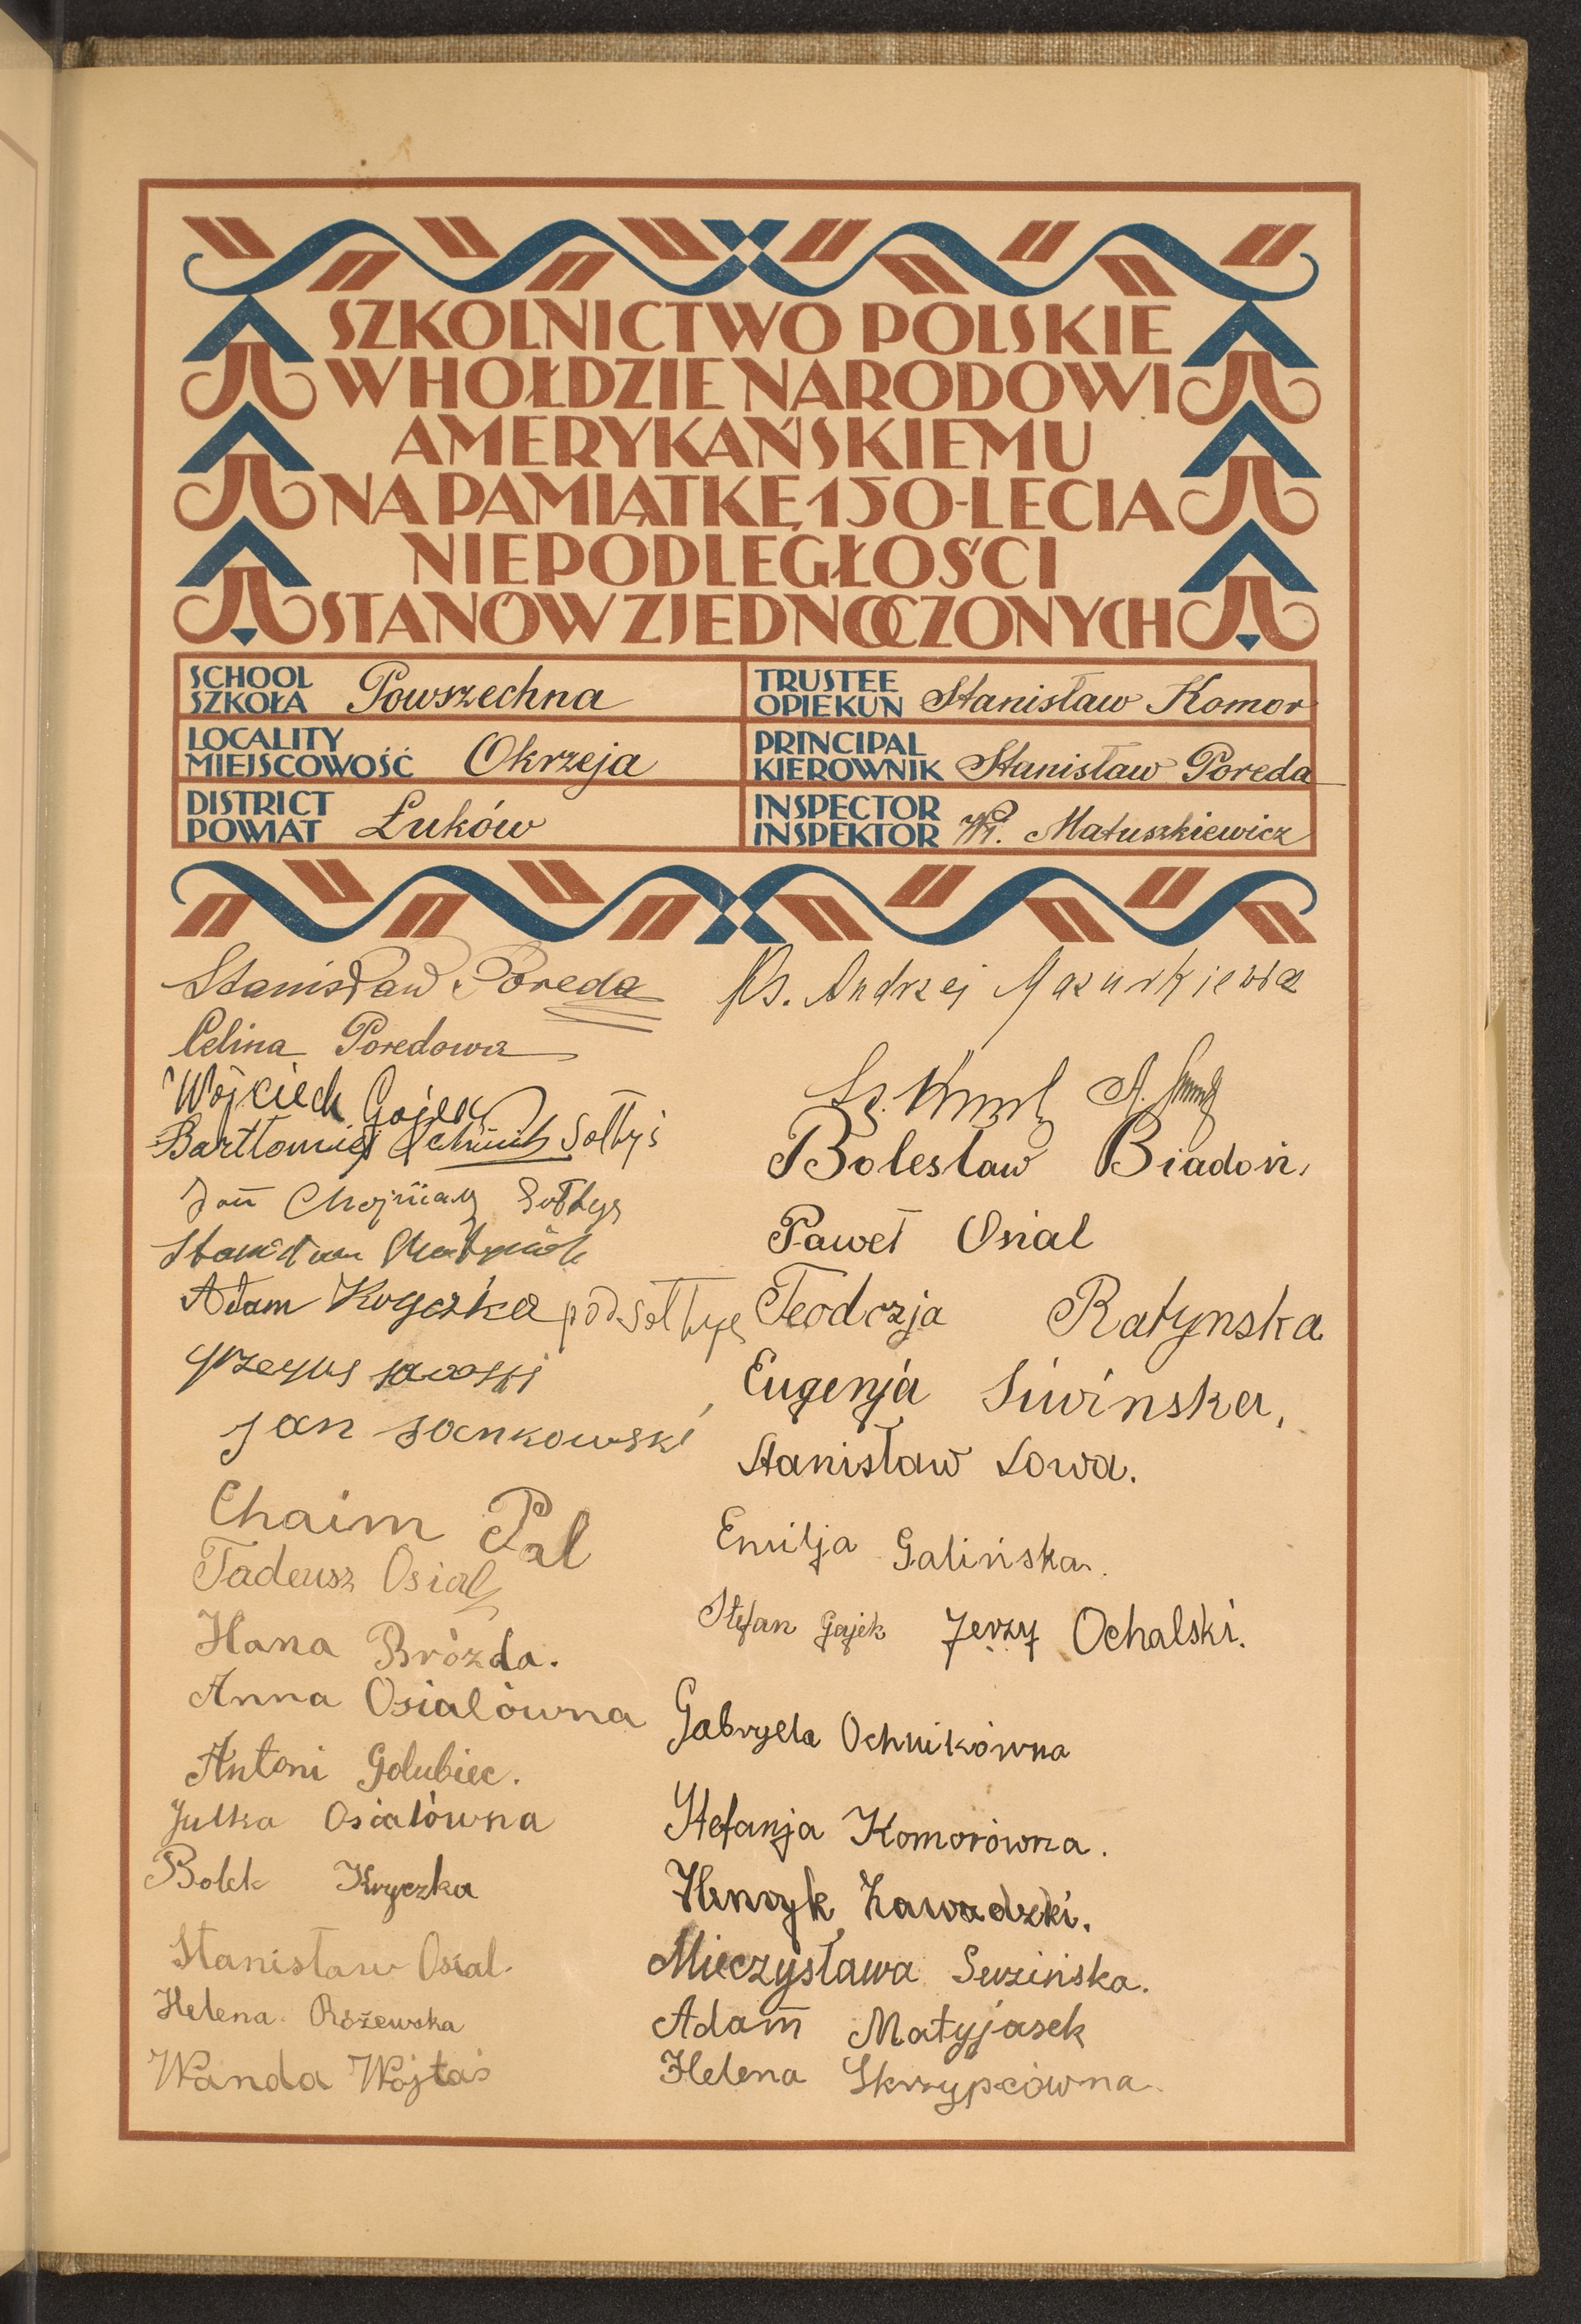 SZKOLNICTWO POLSKIE
W HOŁDZIE NARODOWI
AMERYKAŃSKIEMU
NA PAMIĄTKĘ 150-LECIA
NIEPODLEGŁOŚCI
STANÓW ZJEDNOCZONYCH
SCHOOL
SZKOŁA Powszechna
TRUSTEE
OPIEKUN Stanisław Komor
LOCALITY
MIEJSCOWOŚĆ Okrzeja
PRINCIPAL
KIEROWNIK Stanisław Poreda
DISTRICT
POWIAT Łuków
INSPECTOR
INSPEKTOR Wł. Matuszkiewicz
Stanisław Poreda
Celina Poredowa
Wojciech Gajek
Bartłomiej Sołtys
Jan Chojniak Sołtys
Adam Kryczka podsołtys
Jan Jankowski
Chaim Pal
Tadeusz Osial
Hana Brózda.
Anna Osialówna
Antoni Golubiec.
Julka Osialówna
Bolek Kryczka
Stanisław Osial.
Helena Różewska
Wanda Wójtaś
Ks. Andrzej Mazurkiewicz
Bolesław Biadoń,
Paweł Osial
Teodozja Ratynska
Eugenja Siwinska,
Stanisław Sowa.
Emilja Galińska.
Stefan Gajek Jerzy Ochalski.
Gabryela Ochnikówna
Stefanja Komorówna.
Henryk Zawadzki.
Mieczysława Suzińska.
Adam Matyjasek
Helena Skrzypcówna.